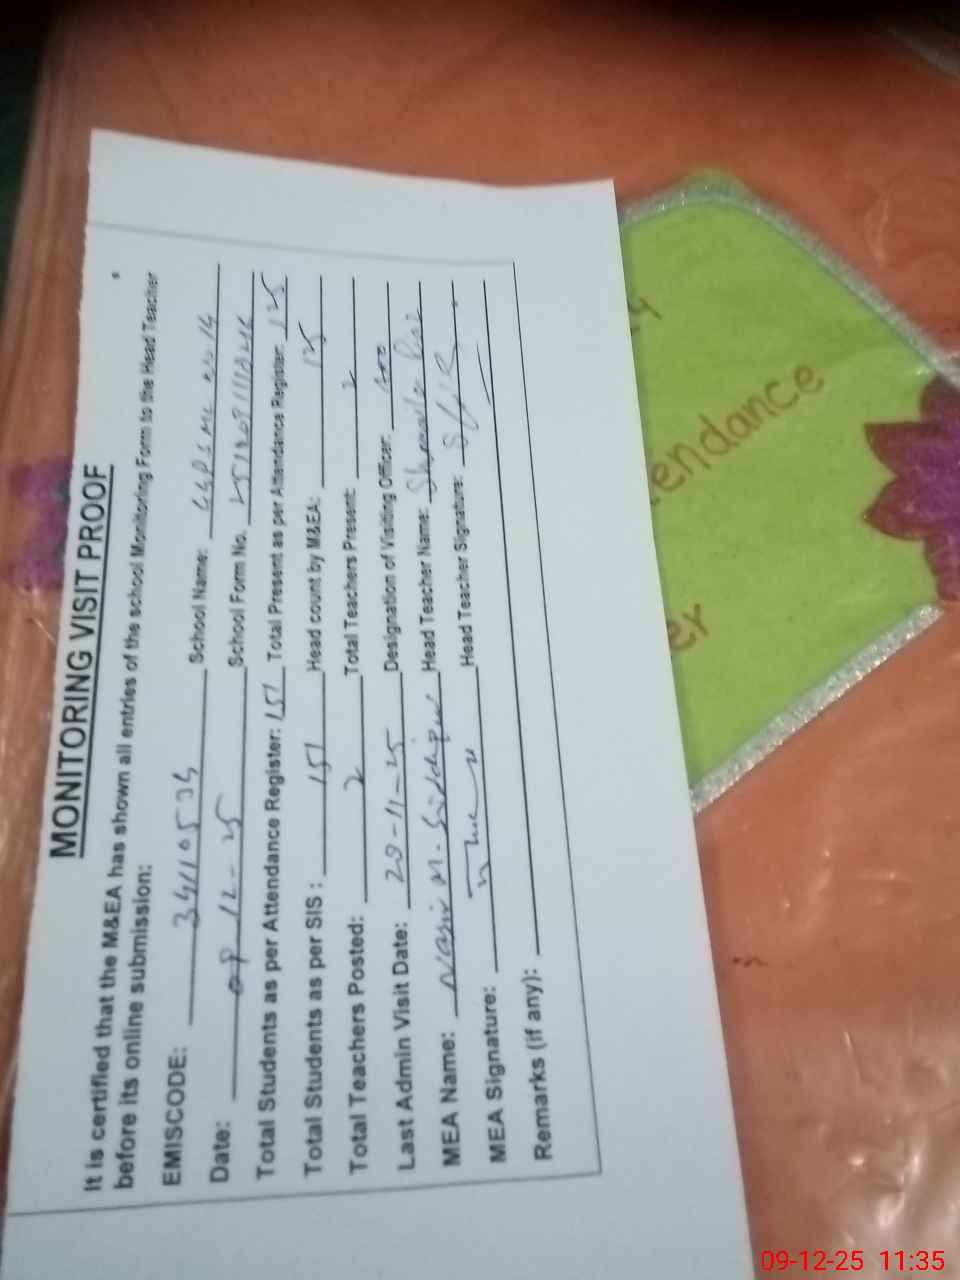 MONITORING VISIT PROOF
It is certified that the M&EA has shown all entries of the school Monitoring Form to the Head Teacher
before its online submission:
EMISCODE: 34110534 School Name:
Date: 09-12-25 School Form No.
Total Students as per Attendance Register: 151 Total Present as per Attendance Register: 125
Total Students as per SIS: 151 Head count by M&EA: 125
Total Teachers Posted: 2 Total Teachers Present: 2
Last Admin Visit Date: 29-11-25 Designation of Visiting Officer:
MEA Name: Nasir M. Head Teacher Name: Shamaila
MEA Signature: Head Teacher Signature:
Remarks (if any):
tendance
er
09-12-25 11:35